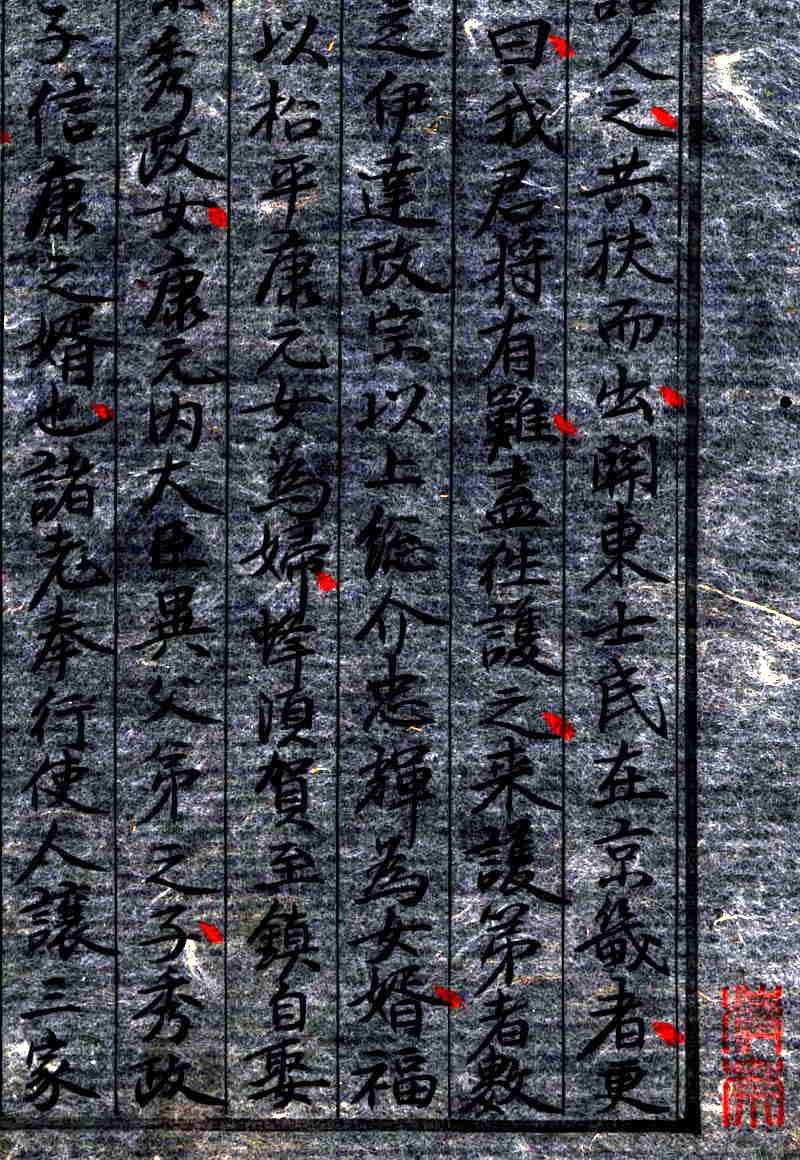 久之共扶而出關東士民在京畿者更
曰我君将有難盍往護之来護第者數
之伊達政宗以上総介忠輝為女婿福
以松平康元女為婦蜂須賀至鎮自娶
秀政女康元内大臣異父弟之子秀政
子信康之婿也諸老奉行使人讓三家